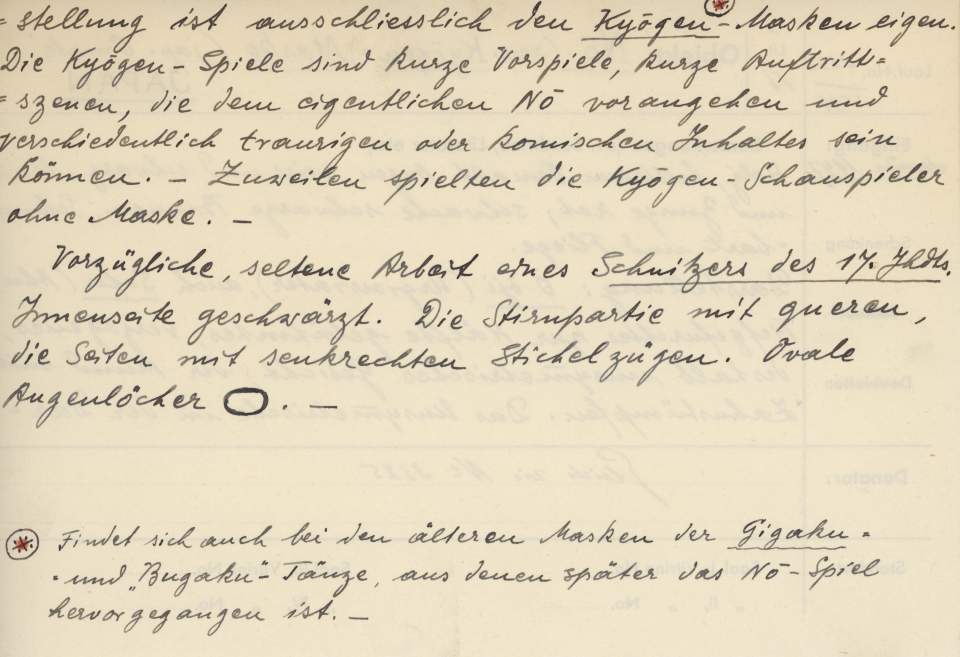 =stellung ist ausschliesslich den Kyōgen-Masken eigen.
Die Kyōgen-Spiele sind kurze Vorspiele, kurze Auftritt=
=szenen, die dem eigentlichen Nō vorangehen und
verschiedentlich traurigen oder komischen Inhaltes sein
können. – Zuweilen spielten die Kyōgen-Schauspieler
ohne Maske. –
Vorzügliche, seltene Arbeit eines Schnitzers des 17. Jhdts.
Innenseite geschwärzt. Die Stirnpartie mit queren,
die Seiten mit senkrechten Stichelzügen. Ovale
Augenlöcher . –
* Findet sich auch bei den älteren Masken der Gigaku-
-und Bugaku-Tänze, aus denen später das Nō-Spiel
hervorgegangen ist. –